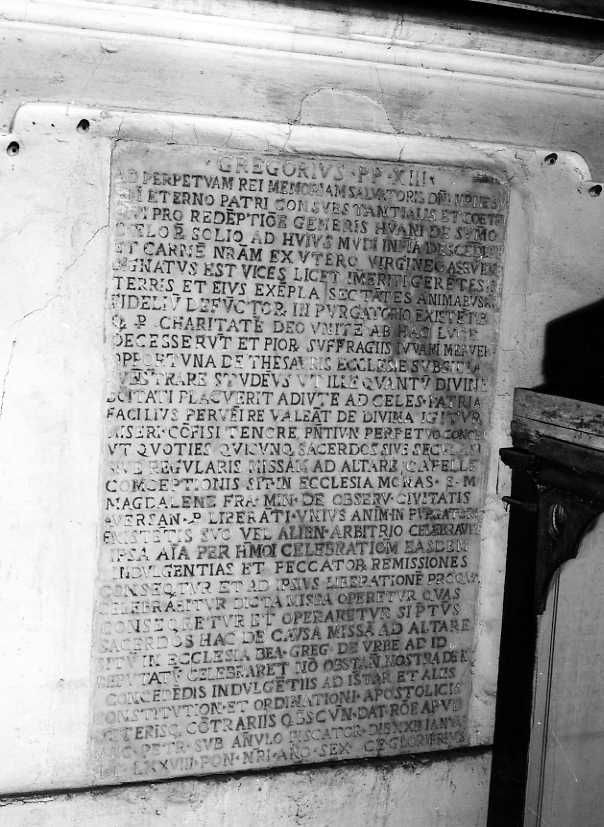 GREGORIVS · PP · XIII ·
AD PERPETVAM REI MEMORIAM SALVATORIS DÑI
ETERNO PATRI CONSVBSTANTIALIS ET COETE
PRO REDĒPTIŌE GENERIS HVANI DE SVMO
SOLIO AD HVIVS MVDI INFIA DESCEDE
ET CARNĒ NRĀM EX VTERO VIRGINEO ASSVM
DIGNATVS EST VICES LICET IMERITI GERETES I
TERRIS ET EIVS EXEPLA SECTATES ANIMABVS
FIDELIV̄ DEFVCTOR IN PVRGATORIO EXISTETIB
CHARITATĒ DEO VNITE AB HAC LVCE
DECESSERVT ET PIOR SVFFRAGIIS IVVARI MERVER
OPPORTVNA DE THESAVRIS ECCLESIE SVBSIDIA
STVDEVS VT ILLE QVANTV̄ DIVINE
PLACVERIT ADIVTE AD CELES PATRIA
FACILIVS PERVEĪRE VALEĀT DE DIVINA IGITVR
MISERI · CŌFISI TENORE PÑTIVM PERPETVO
VT QVOTIES QVICVNQ SACERDOS SIVE
REGVLARIS MISSAM AD ALTARE CAPELLE
COMCEPTIONIS SIT IN ECCLESIA MONAS · S · M
MAGDALENE FRA · MIN · DE OBSERV · CIVITATIS
AVERSAN · P LIBERATI · VNIVS ANIM · IN
SVO VEL ALIEN · ARBITRIO CELEBRAVIT
IPSA AĪA PER HMOI CELEBRATIOM EASDEM
INDVLGENTIAS ET PECCATOR REMISSIONES
CONSEQVTVR ET AD IPSIVS LIBERATIONĒ
CELEBRABITVR DICTA MISSA OPERETVR QVAS
CONSEQRETVR ET OPERARETVR SI PTVS
SACERDOS HAC DE CAVSA MISSĀ AD ALTARE
SITV̄ IN ECCLESIA BEA · GREG · DE VRBE AD ID
DEPVTATV̄ CELEBRARET NŌ OBSTAN̄ NOSTRA DE
CONCEDĒDIS INDVLGĒTIIS AD ISTAR ET ALIIS
CONSTITVTION ET ORDINATIONI · APOSTOLICIS
CETERISQ CŌTRARIIS QBSCVN · DAT · RŌE APVD
PETR · SVB AÑVLO PISCATOR · DIE XXII IANVA
LXXVIII · PON · NRI · AÑO · SEX · CE GLORIERIVS